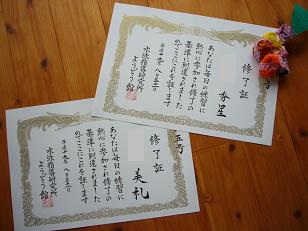 修了証
秀星
あなたは毎日の練習に
熱心に参加され修了の
基準に到達されました
のでここにこれを証します
平成十九年
水泳指導研究所
ようどう館
修了証
美礼
あなたは毎日の練習に
熱心に参加され修了の
基準に到達されました
のでここにこれを証します
平成十九年
水泳指導研究所
ようどう館